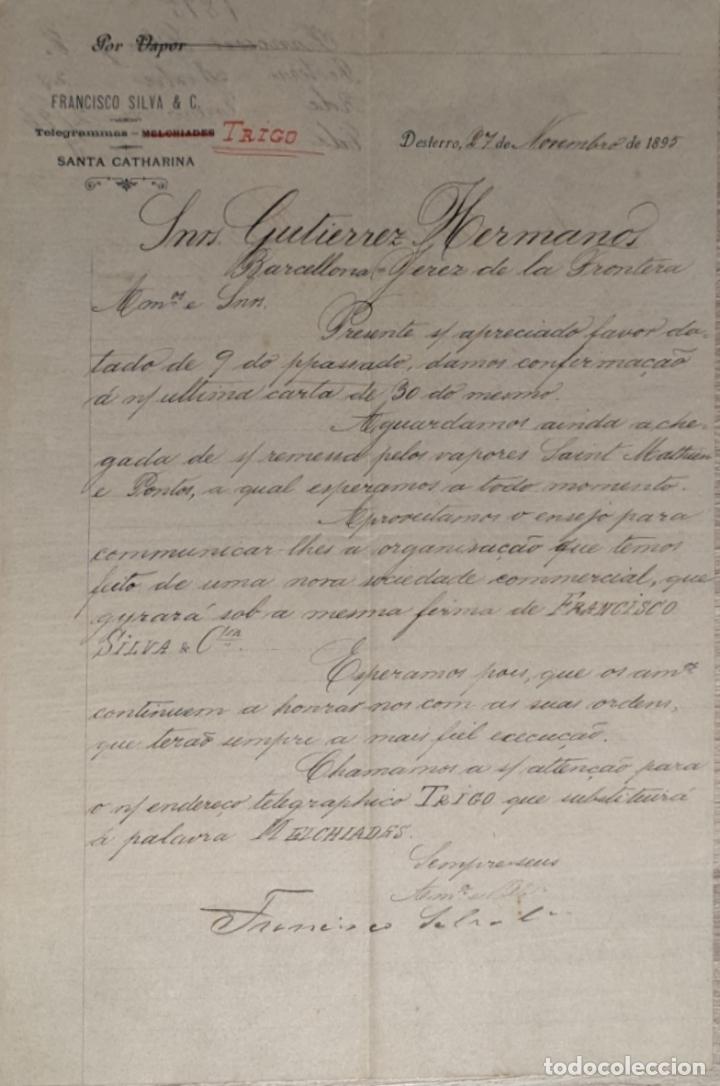 Por Vapor
FRANCISCO SILVA & C.
Telegrammas - MELCHIADES TRIGO
SANTA CATHARINA
Desterro, 27 de Novembro de 1895
Snrs. Gutierrez Hermanos
Barcellona - Yerez de la Frontera
Am.os e Snrs.
Presente s/ apreciado favor da-
tado de 9 do ppassado, damos confirmação
á n/ ultima carta de 30 do mesmo.
Aguardamos ainda a che-
gada de s/ remessa pelos vapores Saint Mathieu
e Pontos, a qual esperamos a todo momento.
Aproveitamos o ensejo para
communicar-lhes a organisação que temos
feito de uma nova sociedade commercial, que
gyrará sob a mesma firma de FRANCISCO
SILVA & C.ia
Esperamos pois, que os am.os
continuem a honrar-nos com as suas ordens,
que terão sempre a mais fiel execução.
Chamamos a s/ attenção para
o n/ endereço telegraphico TRIGO que substituirá
á palavra MELCHIADES.
Sempre seus
Am.os
Francisco Silva & C.
todocoleccion.net